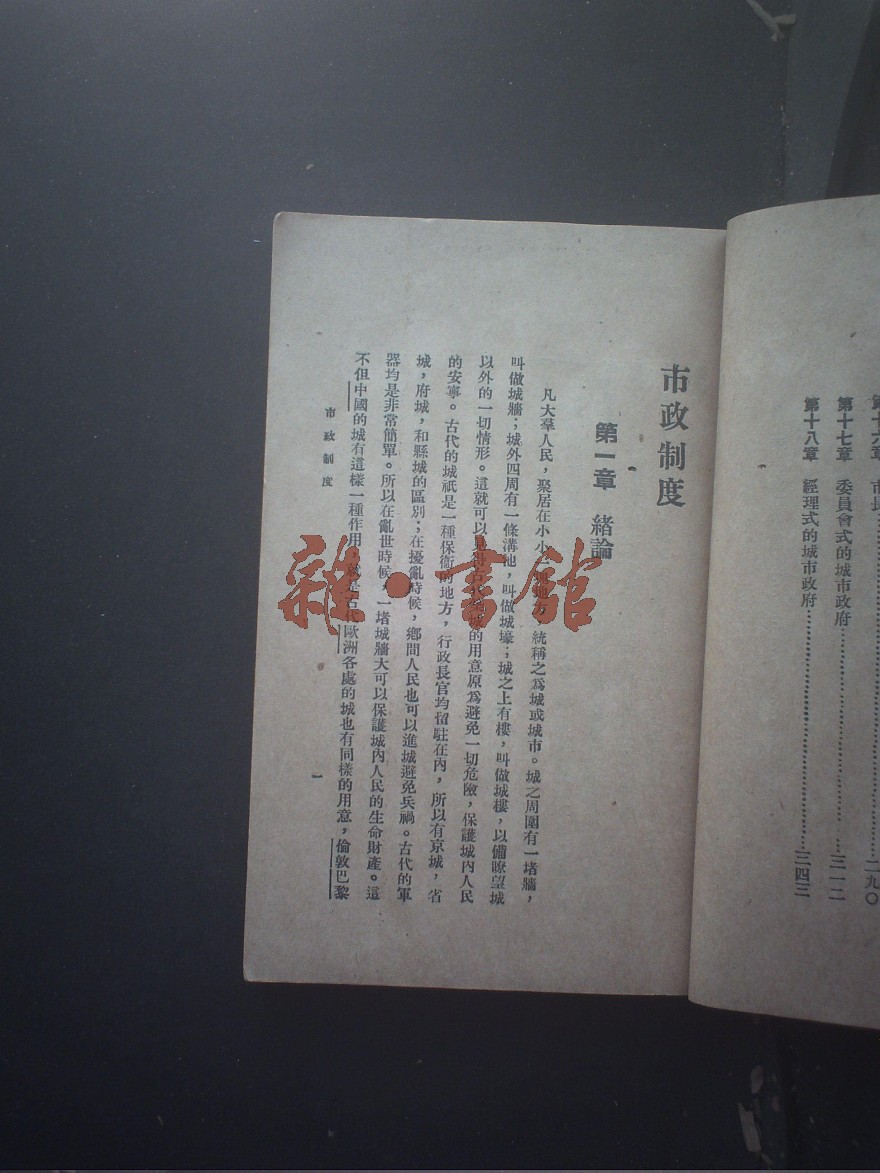 第十六章 市長……二九〇
第十七章 委員會式的城市政府……三一二
第十八章 經理式的城市政府……三四三
市政制度
第一章 緒論
凡大羣人民，聚居在小小 地方，統稱之爲城或城市。城之周圍有一堵牆，
叫做城牆；城外四周有一條溝池，叫做城壕；城之上有樓，叫做城樓，以備瞭望城
以外的一切情形。這就可以見得古代 城的用意原爲避免一切危險，保護城內人民
的安寧。古代的城祇是一種保衞的地方，行政長官均留駐在內，所以有京城，省
城，府城，和縣城的區別；在擾亂時候，鄉間人民也可以進城避免兵禍。古代的軍
器均是非常簡單。所以在亂世時候，一堵城牆大可以保護城內人民的生命財產。這
不但中國的城有這樣一種作用，就是古代歐洲各處的城也有同樣的用意，倫敦巴黎
市政制度
一
雜·書館